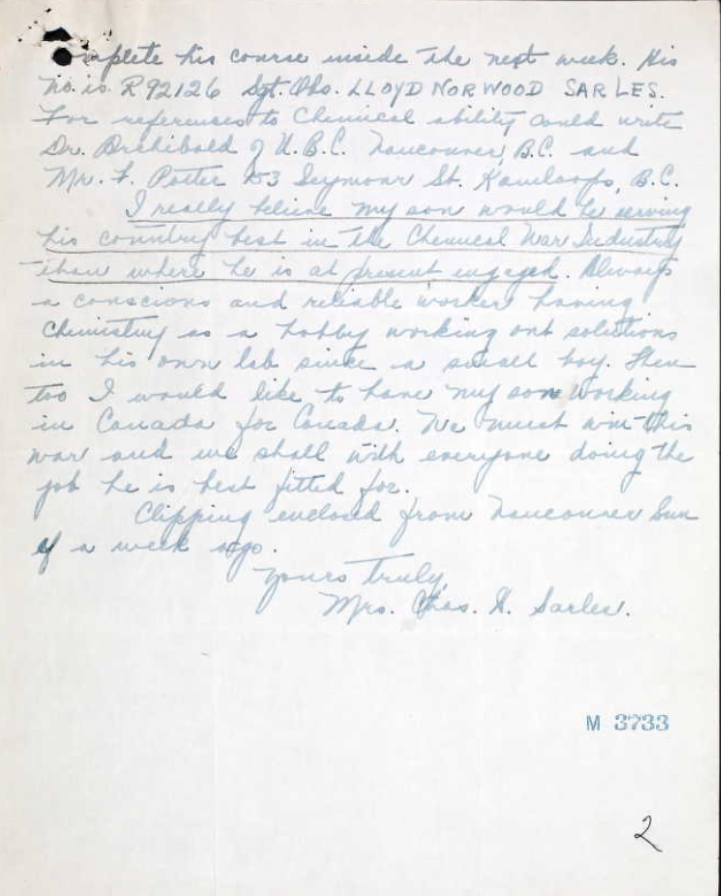 complete his course inside the next week. His
no. is R92126 Sgt. Obs. LLOYD NORWOOD SARLES.
For references to Chemical ability could write
Dr. Archibald of U.B.C. Vancouver, B.C. and
Mr. F. Seymour St. Kamloops, B.C.
I really believe my son would be serving
his country best in the Chemical War Industry
than where he is at present engaged. Always
a conscious and reliable worker having
Chemistry as a hobby working out solutions
in his own lab since a small boy. Then
too I would like to have my son working
in Canada for Canada. We must win this
war and we shall with everyone doing the
job he is best fitted for.
Clipping enclosed from Vancouver Sun
of a week ago.
Yours truly,
Mrs. Chas. H. Sarles.
M 3733
2